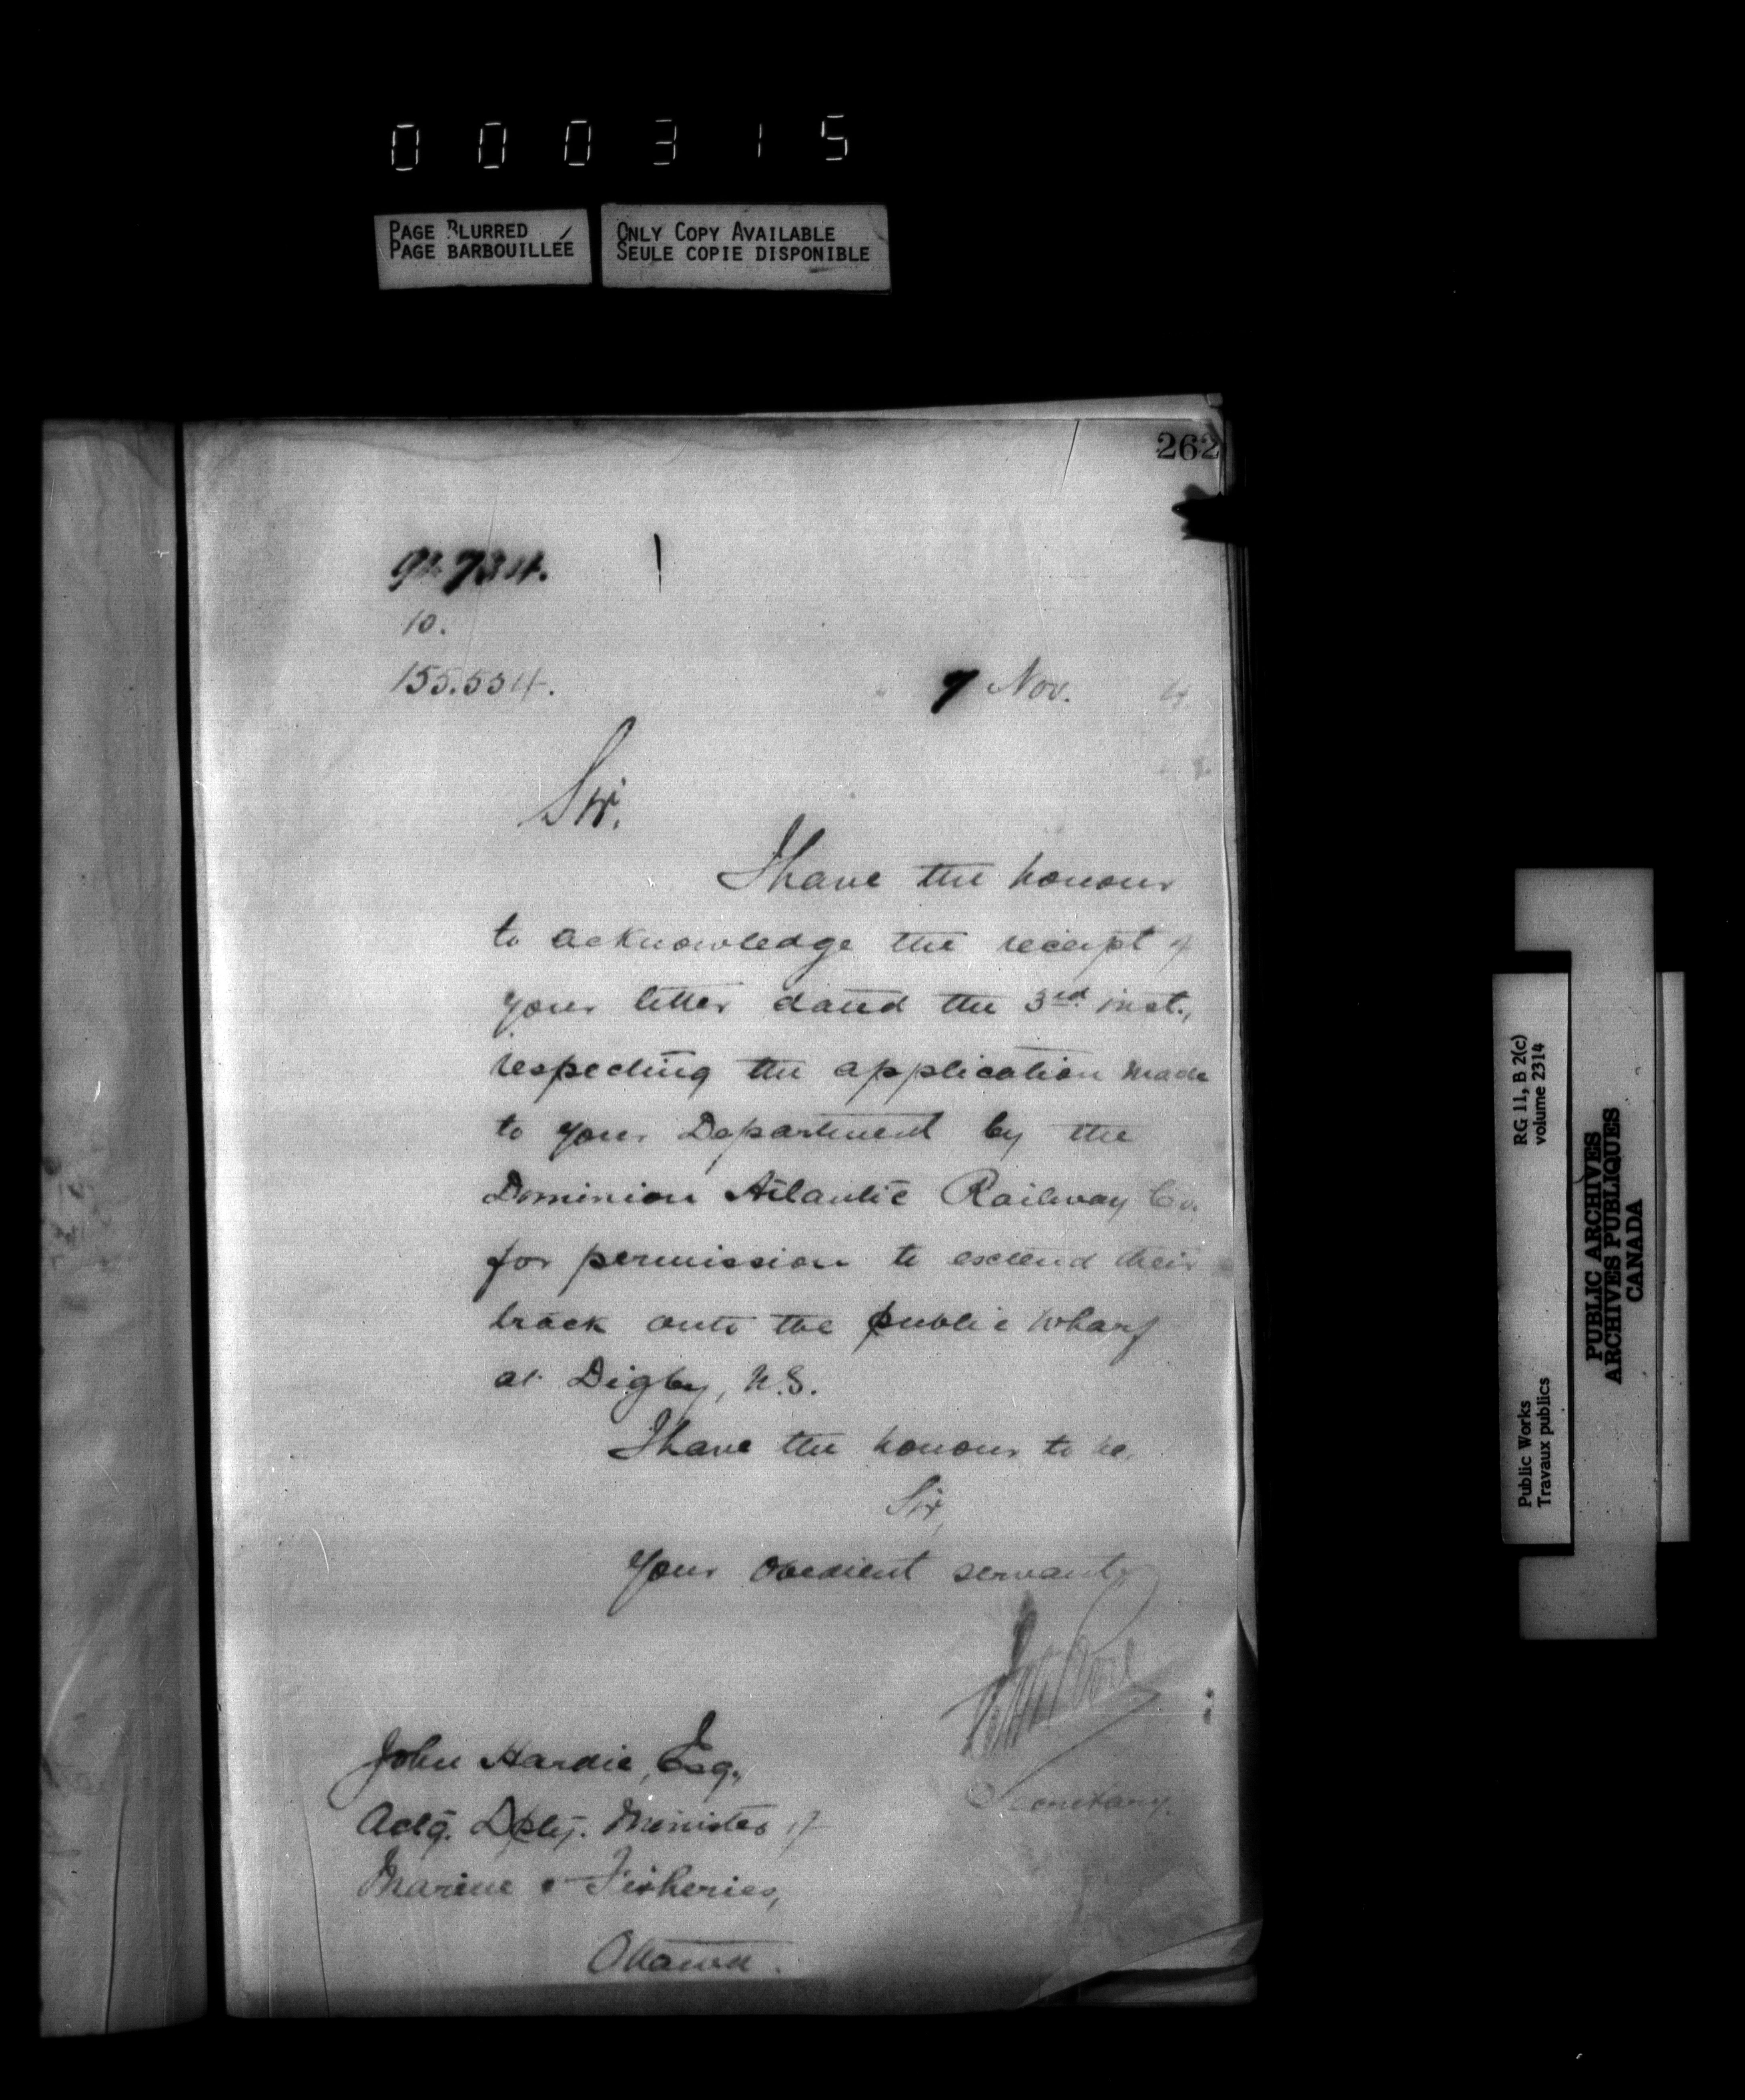 000315
PAGE BLURRED
PAGE BARBOUILLÉE
ONLY COPY AVAILABLE
SEULE COPIE DISPONIBLE
262
10.
155.554.
7 Nov. 4
Sir,
I have the honour
to acknowledge the receipt of
your letter dated the 3rd inst.,
respecting the application made
to your Department by the
Dominion Atlantic Railway Co.
for permission to extend their
track onto the public wharf
at Digby, N.S.
I have the honour to be,
Sir,
Your obedient servant,
Secretary.
John Hardie, Esq.,
Actg. Dpty. Minister of
Marine & Fisheries,
Ottawa.
RG 11, B 2(c)
volume 2314
Public Works
Travaux publics
PUBLIC ARCHIVES
ARCHIVES PUBLIQUES
CANADA